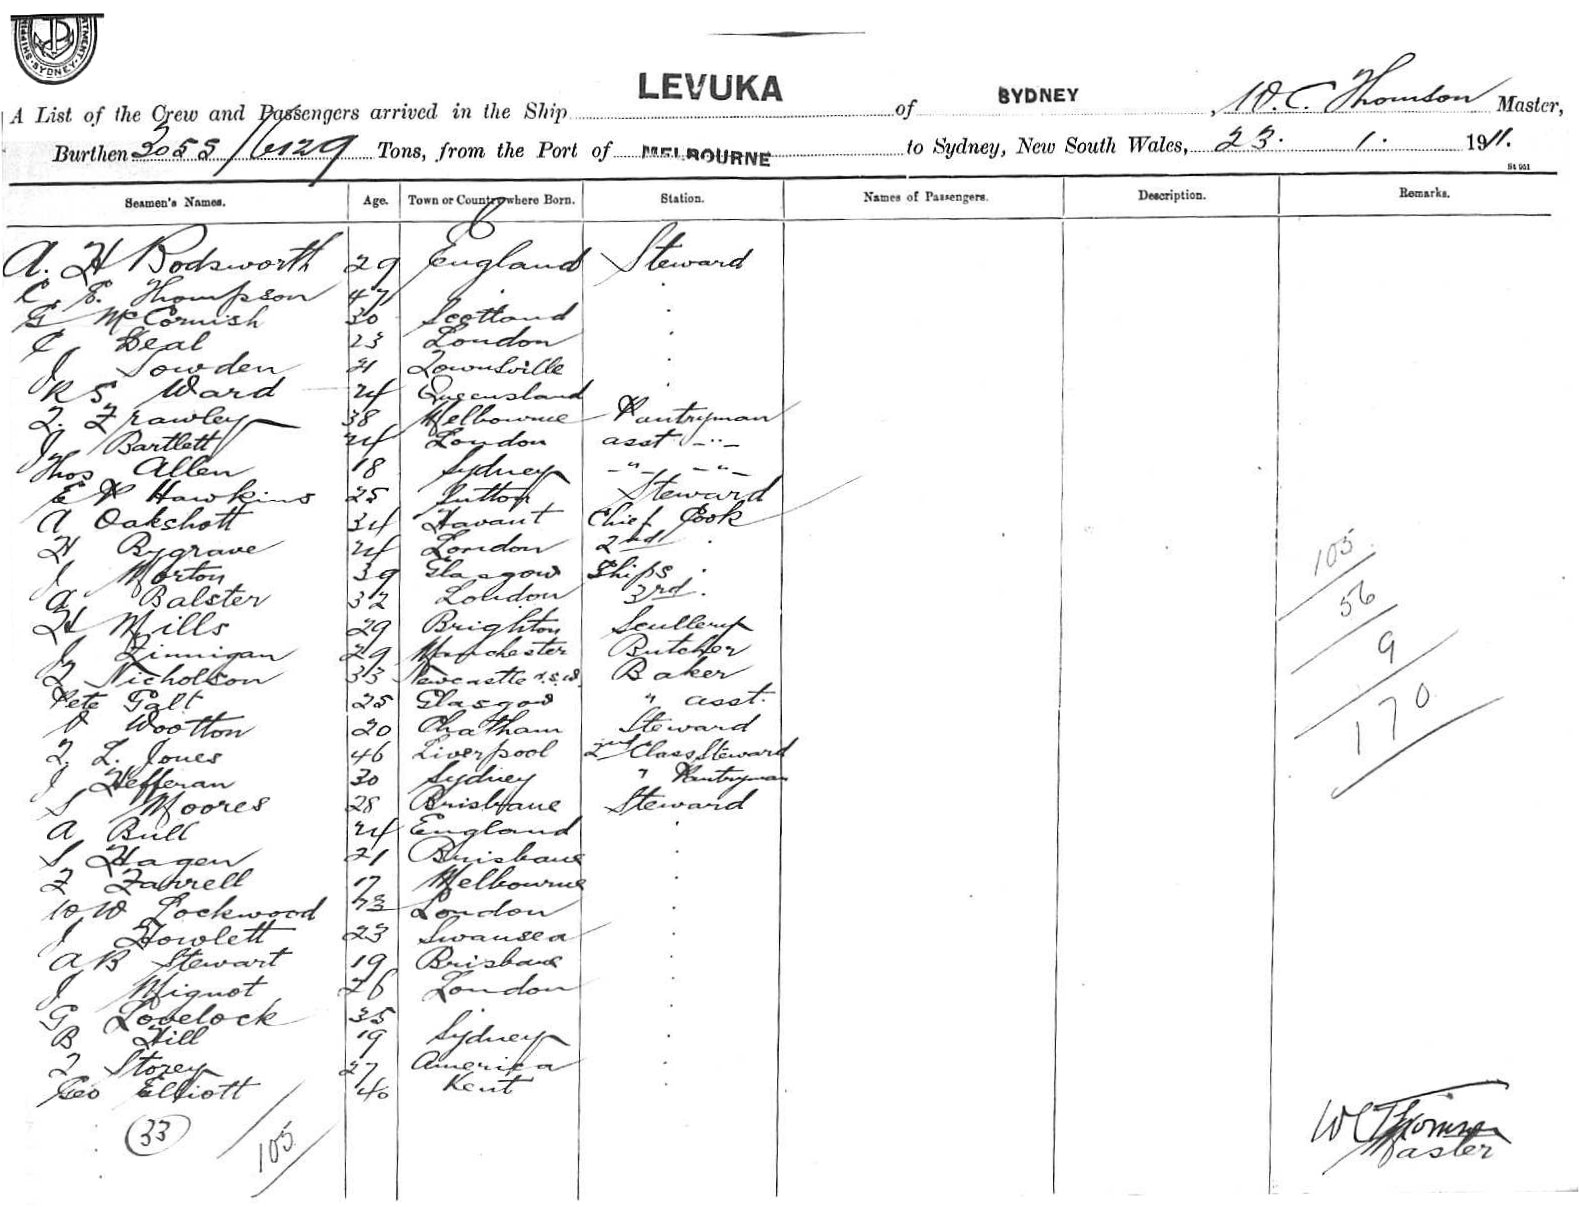 SYDNEY
LEVUKA SYDNEY
A List of the Crew and Passengers arrived in the Ship of , W. C. Thomson Master,
Burthen 3055/6129 Tons, from the Port of MELBOURNE to Sydney, New South Wales, 23. 1. 1911.
St 951
Seamen's Names. Age. Town or Country where Born. Station. Names of Passengers. Description. Remarks.
A. H Bodsworth 29 England Steward
C. E. Thompson 47 "
G McCornish 30 Scotland "
C Deal 23 London "
J Sowden 21 Townsville "
R S Ward 24 Queensland "
T. Frawley 38 Melbourne Pantryman
J Bartlett 24 London asst -"-
Thos Allen 18 Sydney -"- -"-
E Hawkins 25 Sutton Steward
A Oakshott 34 Havant Chief Cook
H Bygrave 24 London 2nd "
J Morton 39 Glasgow Ships "
A Balster 32 London 3rd "
H Mills 29 Brighton Scullery
J Finnigan 29 Manchester Butcher
T Nicholson 33 Newcastle N.S.W. Baker
Pete Galt 25 Glasgow " asst.
V Wootton 20 Chatham Steward
T. L. Jones 46 Liverpool 2nd Class Steward
J Hefferan 30 Sydney " Pantryman
S Moores 28 Brisbane Steward
A Bull 24 England "
S Hagen 21 Brisbane "
F Farrell 17 Melbourne "
W W Lockwood 23 London "
J Howlett 23 Swansea "
A B Stewart 19 Brisbane "
J Mignot 26 London "
G Lovelock 35 " "
B Hill 19 Sydney "
T Storey 27 America "
Geo Elliott 40 Kent "
33
105
105
56
9
170
W C Thomson
Master